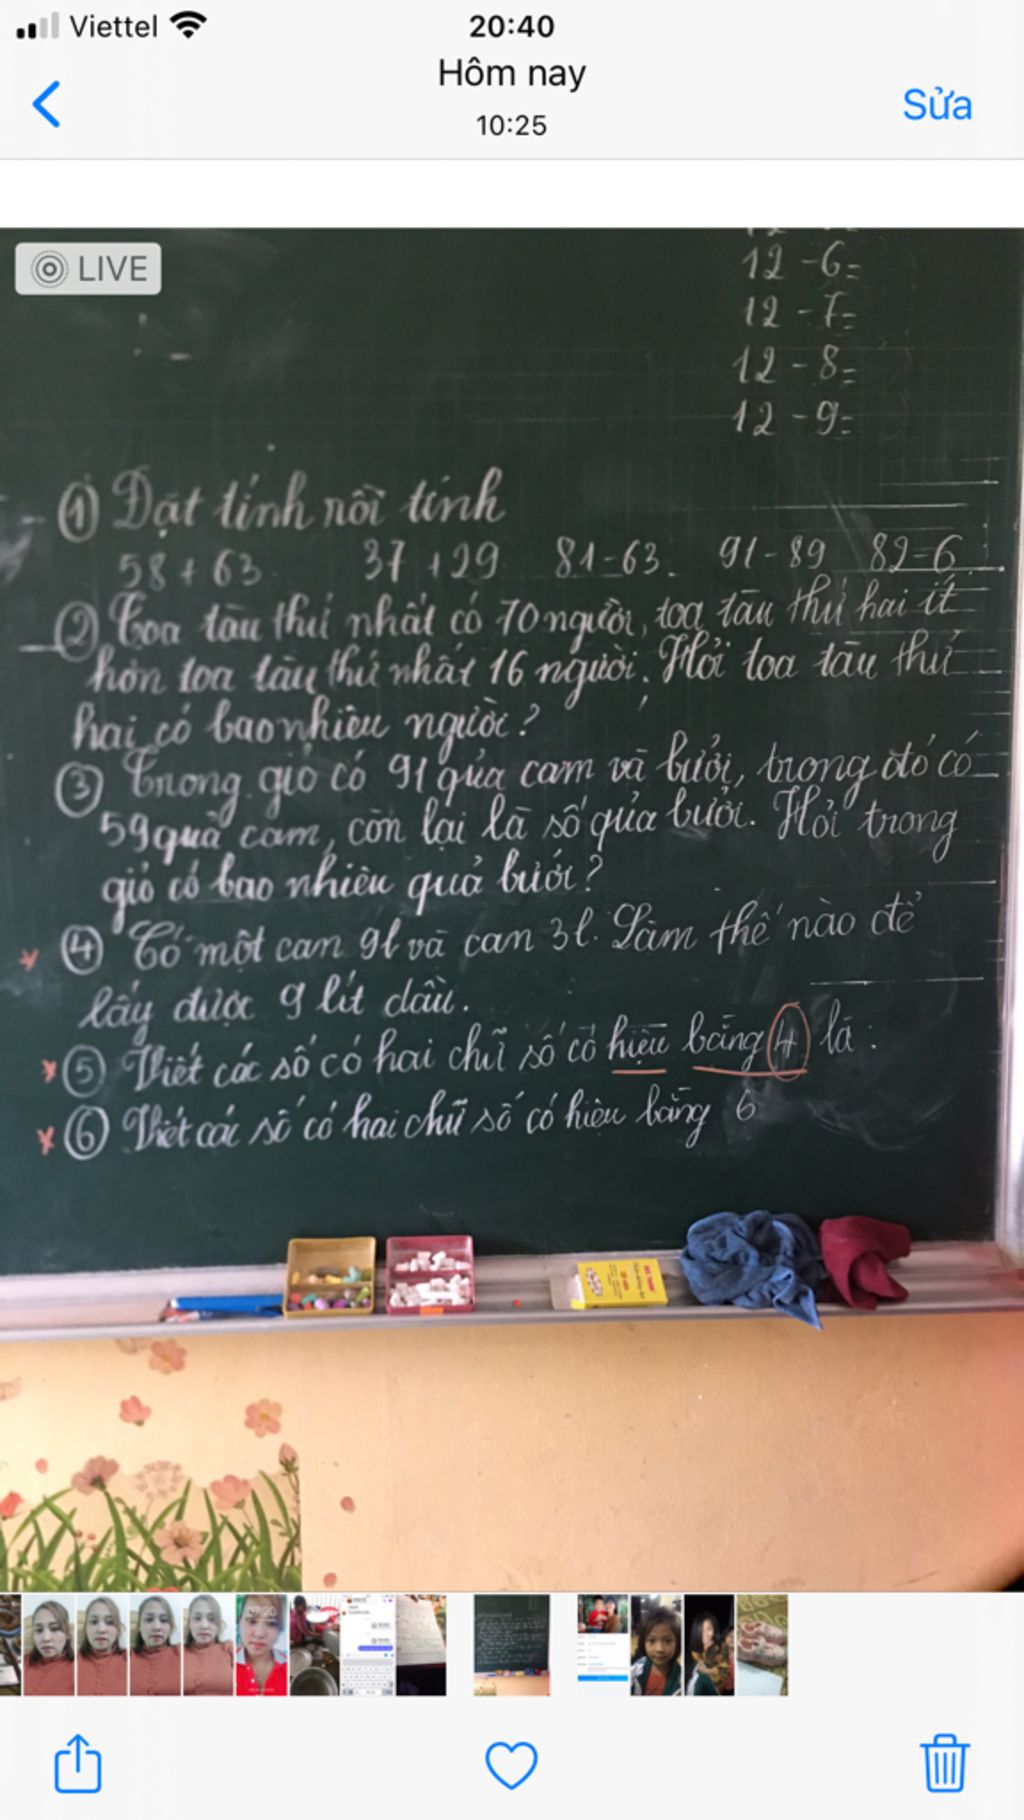 Viettel
20:40
Hôm nay
10:25
Sửa
LIVE
12 - 6 =
12 - 7 =
12 - 8 =
12 - 9 =
① Đặt tính rồi tính
58 + 63 37 + 29 81 - 63 91 - 89 82 - 6
② Toa tàu thứ nhất có 70 người, toa tàu thứ hai ít
hơn toa tàu thứ nhất 16 người. Hỏi toa tàu thứ
hai có bao nhiêu người?
③ Trong giỏ có 91 qủa cam và bưởi, trong đó có
59 quả cam, còn lại là số qủa bưởi. Hỏi trong
giỏ có bao nhiêu quả bưởi?
④ Có một can 9l và can 3l. Làm thế nào để
lấy được 9 lít dầu.
⑤ Viết các số có hai chữ số có hiệu bằng 4 là :
⑥ Viết các số có hai chữ số có hiệu bằng 6